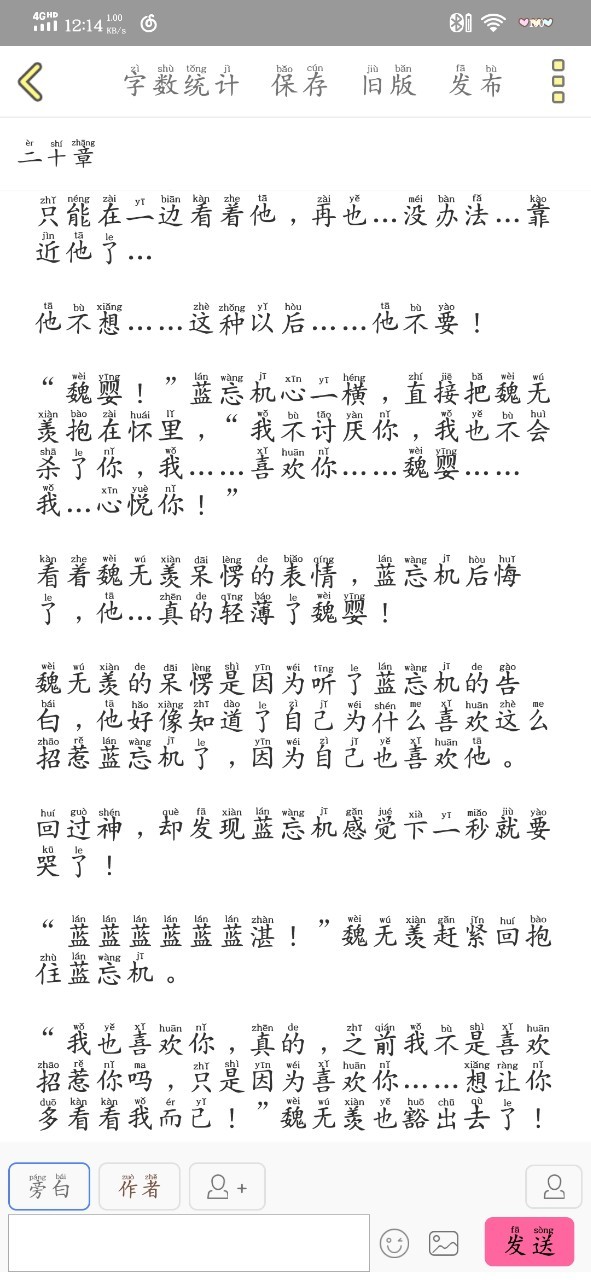 4GHD 12:14 1.00 KB/s
字数统计 保存 旧版 发布
二十章
只能在一边看着他，再也…没办法…靠
近他了…
他不想……这种以后……他不要！
“魏婴！”蓝忘机心一横，直接把魏无
羡抱在怀里，“我不讨厌你，我也不会
杀了你，我……喜欢你……魏婴……
我…心悦你！”
看着魏无羡呆愣的表情，蓝忘机后悔
了，他…真的轻薄了魏婴！
魏无羡的呆愣是因为听了蓝忘机的告
白，他好像知道了自己为什么喜欢这么
招惹蓝忘机了，因为自己也喜欢他。
回过神，却发现蓝忘机感觉下一秒就要
哭了！
“蓝蓝蓝蓝蓝蓝湛！”魏无羡赶紧回抱
住蓝忘机。
“我也喜欢你，真的，之前我不是喜欢
招惹你吗，只是因为喜欢你……想让你
多看看我而已！”魏无羡也豁出去了！
旁白 作者 +
发送